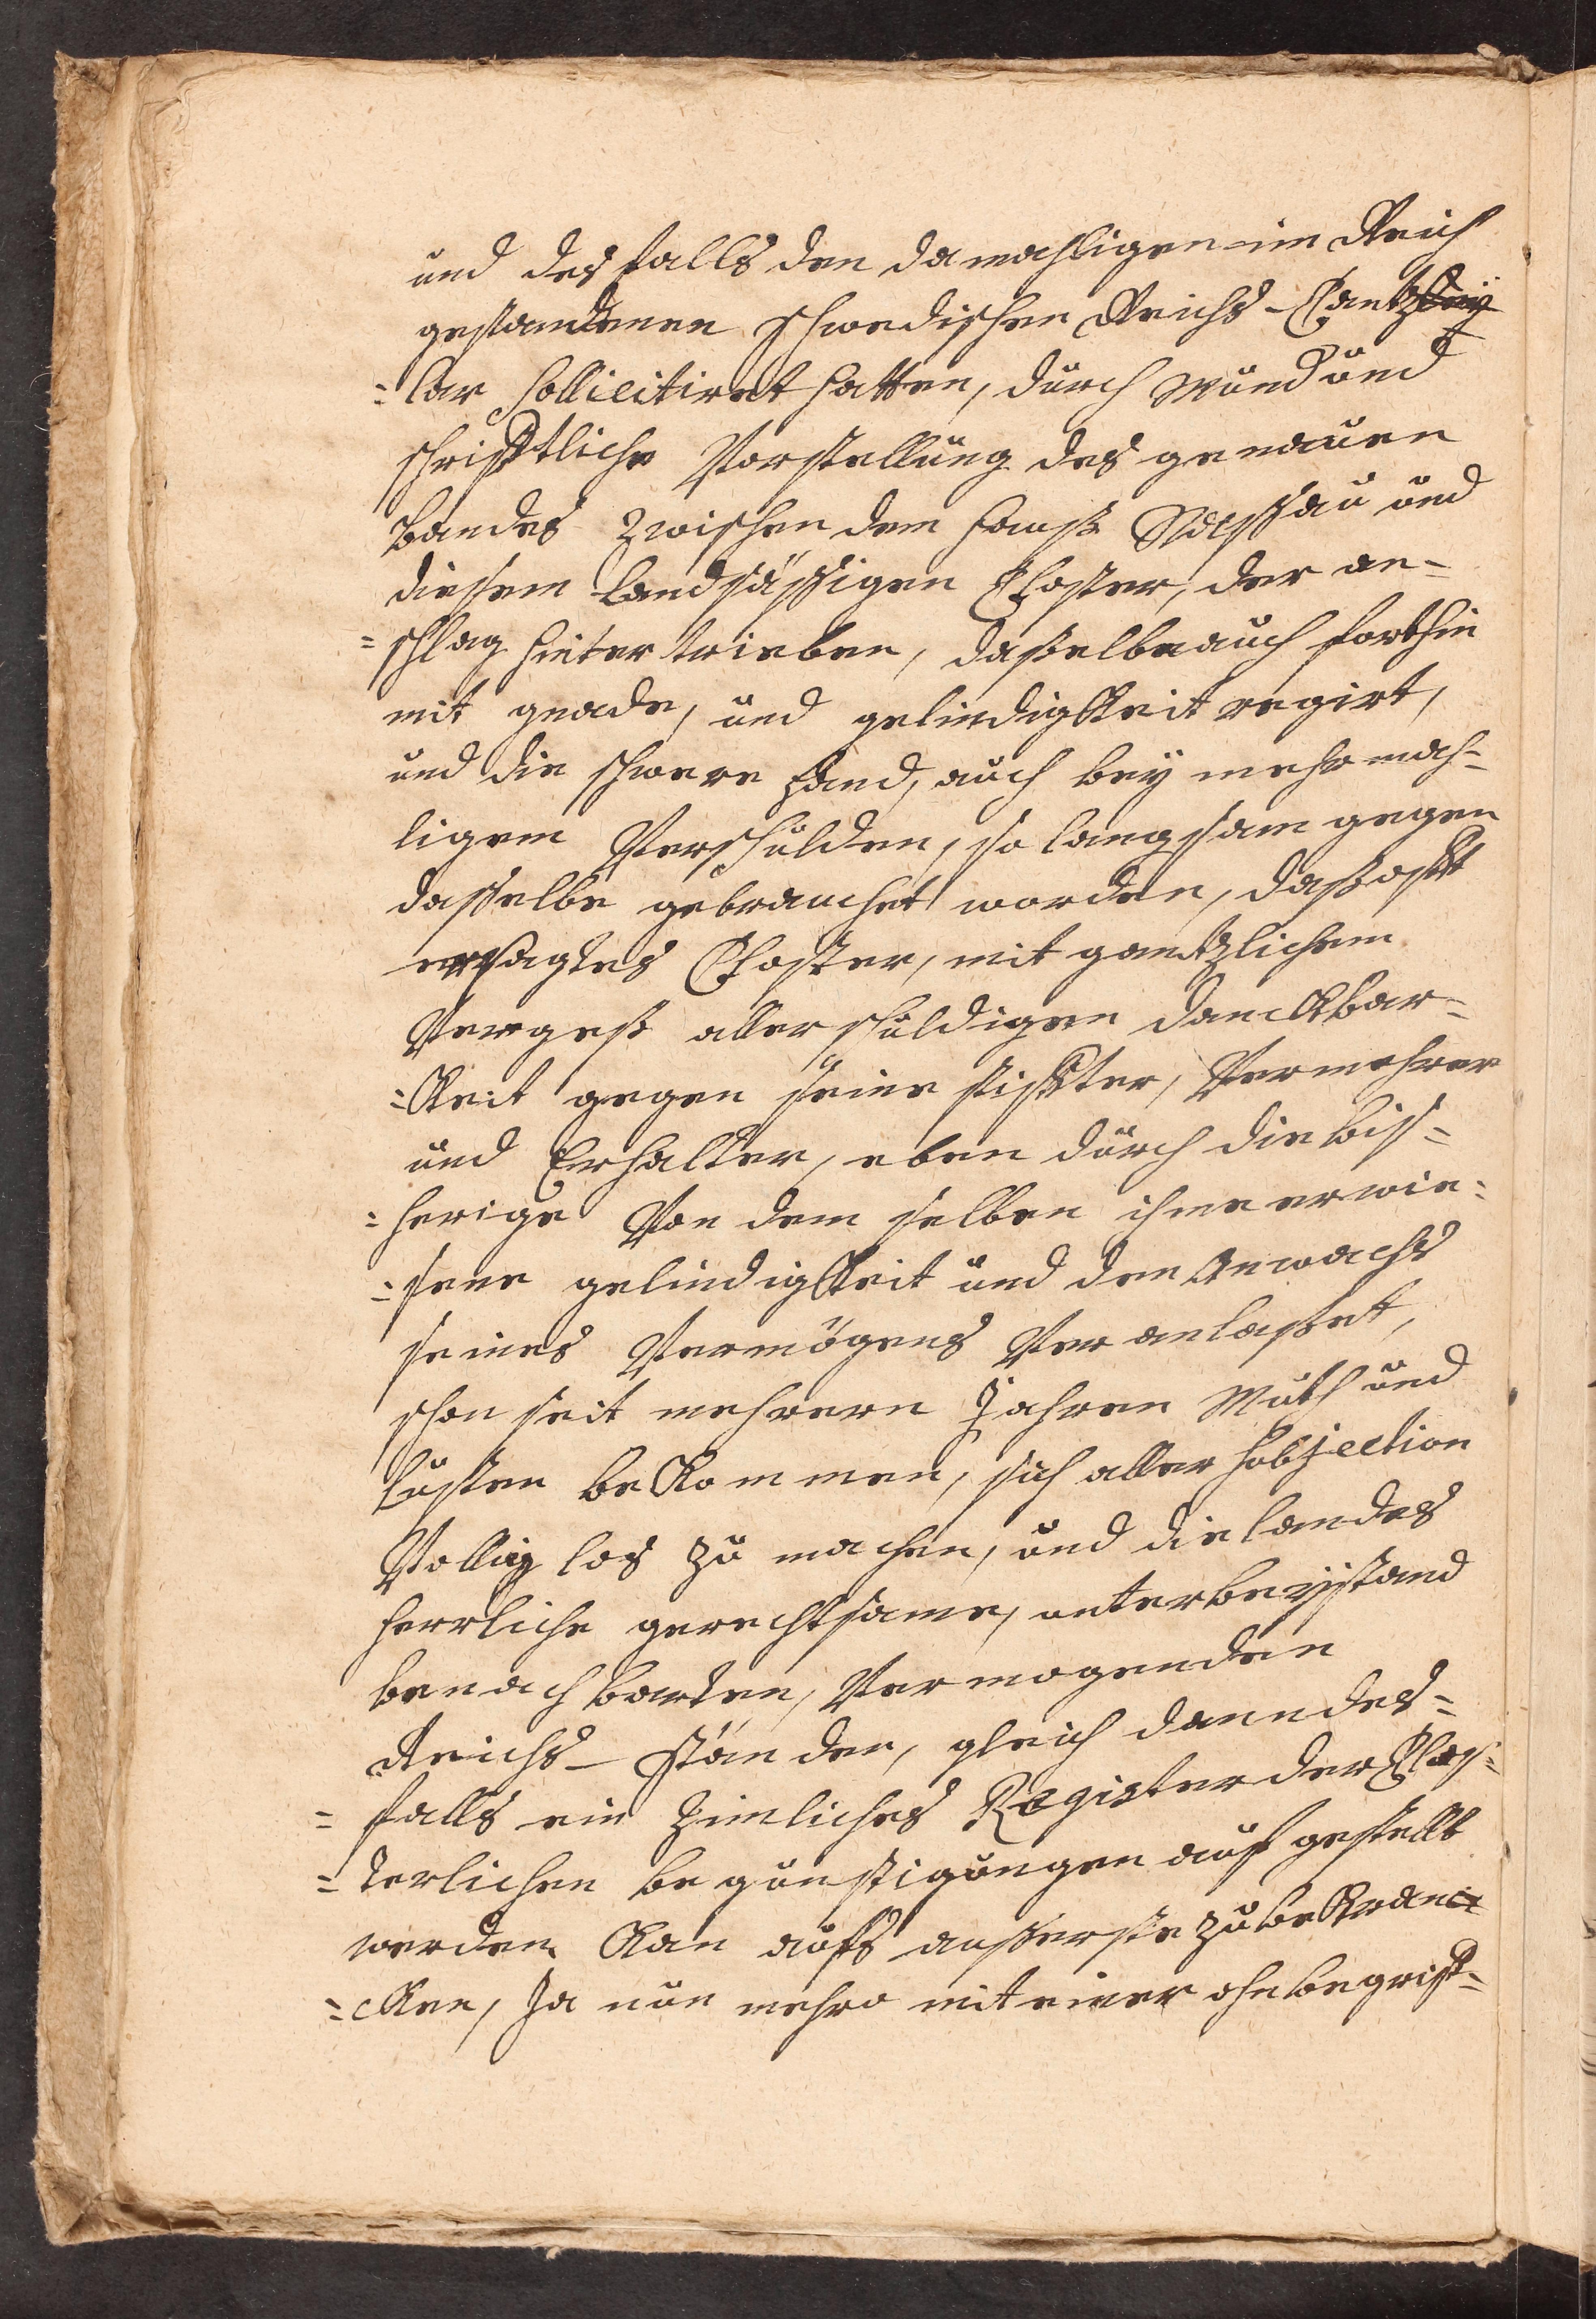 und desfalls den damahligen im Reich
gestandenen schwedischen Reichs-Cantzley
=lar sollicitiret hatten, durch Mund und
schrifftliche Vorstellung des genauen
bandes zwischen dem Hauß Nassau und
diesem Landsässigen Closter, der an-
=schlag hintertrieben, daßelbe auch forthin
mit gnade, und gelindigkeit regirt,
und die schwere Hand, auch bey mehrmah-
ligem Verschulden, so langsam gegen
dasselbe gebrauchet worden, daß offt
ersagtes Closter, mit gäntzlichem
Vergeß aller schuldigen danckbar-
=keit gegen seine stiffter, Vermehrer
und Erhalter, eben durch die biß-
=herige Von demselben ihme erwie-
=sene gelindigkeit und den Anwachs
seines Vermögens Veranlaßet,
schon seit mehrern Jahren Muth und
lusten bekommen, sich aller subjection
Völlig los zu machen, und die landes
herrliche gerechtsame, unter beystand
benachbarten, Vermögenden
Reichs-Ständen, gleich dann des-
=falls ein zimliches Register der Clos-
=terlichen begünstigungen aufgestellt
werden kan aufs ausserste zu bekrän
=cken, Ja nun mehro mit einer ohnbegriff-